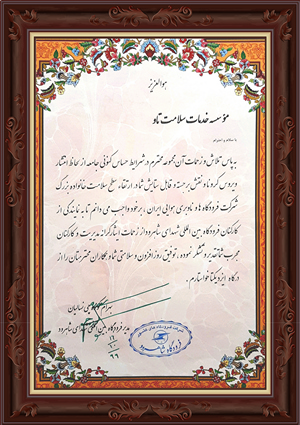 هوالعزیز
مؤسسه خدمات سلامت تاو
با سلام و احترام
به پاس تلاش و زحمات آن مجموعه محترم در شرایط حساس کنونی جامعه از لحاظ انتشار
ویروس کرونا و نقش برجسته و قابل ستایش شما در ارتقاء سطح سلامت خانواده بزرگ
شرکت فرودگاه ها و ناوبری هوایی ایران ، برخود واجب می دانم تا به نمایندگی از
کارکنان فرودگاه بین المللی شهدای شاهرود از زحمات ایثارگرانه مدیریت و کارکنان
مجرب شما تقدیر و تشکر نموده ، توفیق روزافزون و سلامتی شما و همکاران محترمتان را از
درگاه ایزد یکتا خواستارم .
بهرام
مدیر فرودگاه بین المللی شهدای شاهرود